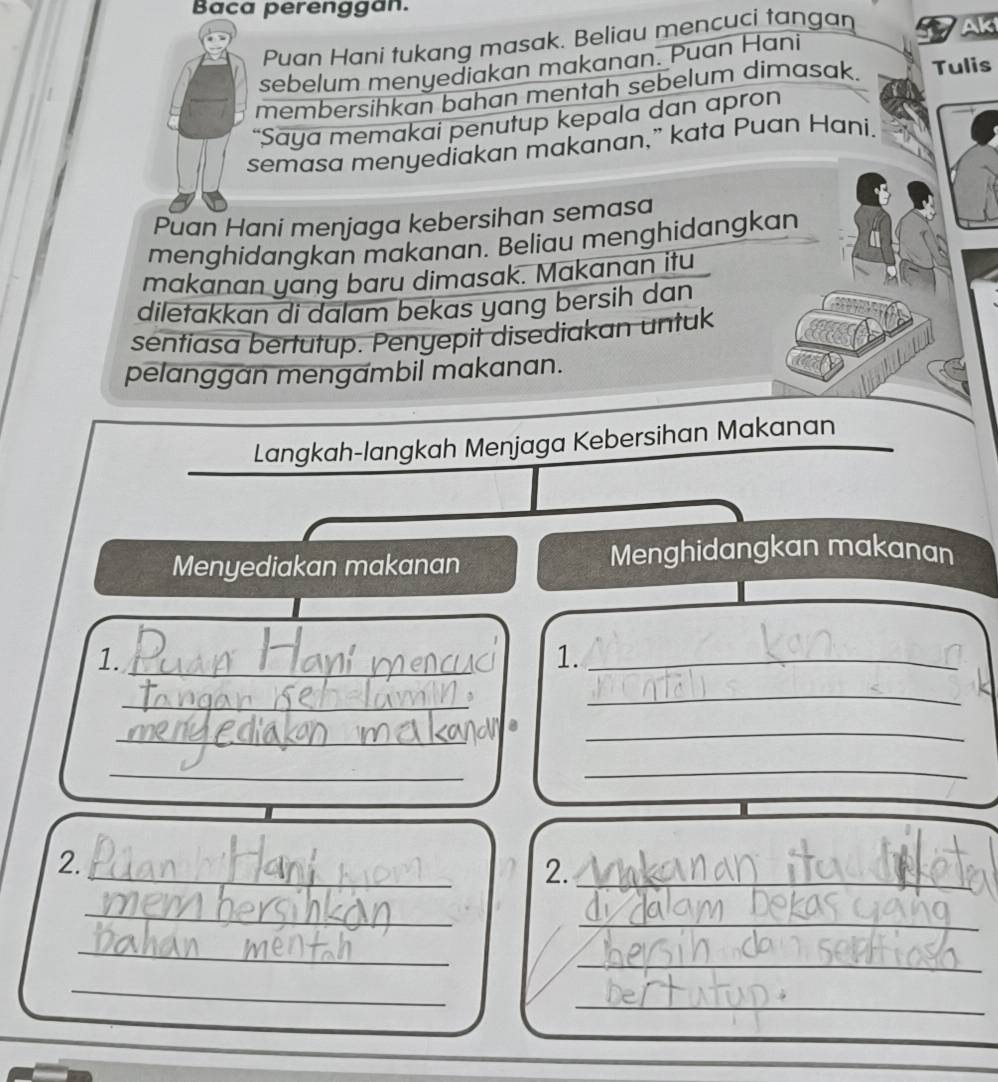 Baca perenggan.
Puan Hani tukang masak. Beliau mencuci tangan
sebelum menyediakan makanan. Puan Hani
membersihkan bahan mentah sebelum dimasak.
“Saya memakai penutup kepala dan apron
semasa menyediakan makanan,” kata Puan Hani.
Tulis
Puan Hani menjaga kebersihan semasa
menghidangkan makanan. Beliau menghidangkan
makanan yang baru dimasak. Makanan itu
diletakkan di dalam bekas yang bersih dan
sentiasa bertutup. Penyepit disediakan untuk
pelanggan mengambil makanan.
Langkah-langkah Menjaga Kebersihan Makanan
Menyediakan makanan
Menghidangkan makanan
1. Puan Hani mencuci
tangan
menyediakan makanan.
1.
2. Puan Hani
membersihkan
bahan mentah
2. Makanan itu
di dalam bekas yang
bersih dan sentiasa
bertutup.